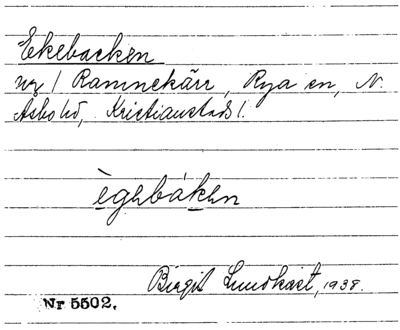 Ekebacken
uz / Ramnekärr, Rya sn, N.
Asbo hd, Kristianstads l.
ègəbákən
Birgit Lundkvist, 1938.
Nr 5502.